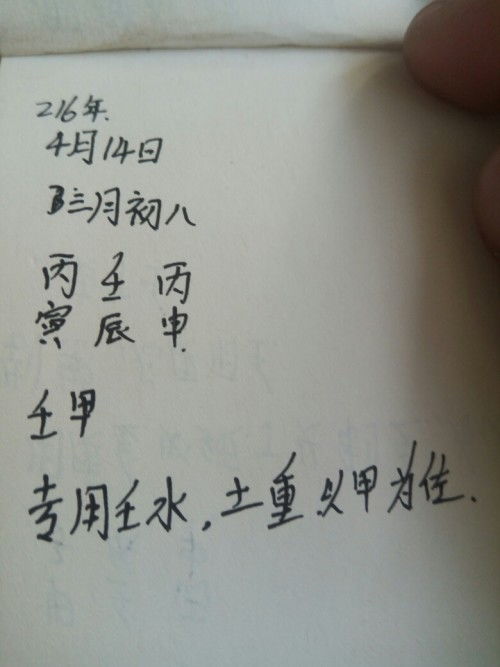 216年.
4月14日
三月初八
丙 壬 丙
寅 辰 申.
壬甲
专用壬水,土重以甲为佐.